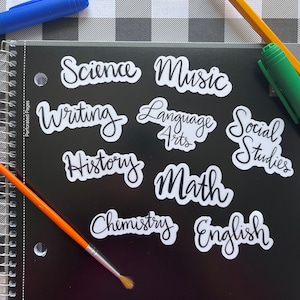 Science
Music
Writing
Language
Arts
Social
Studies
History
Math
Chemistry
English